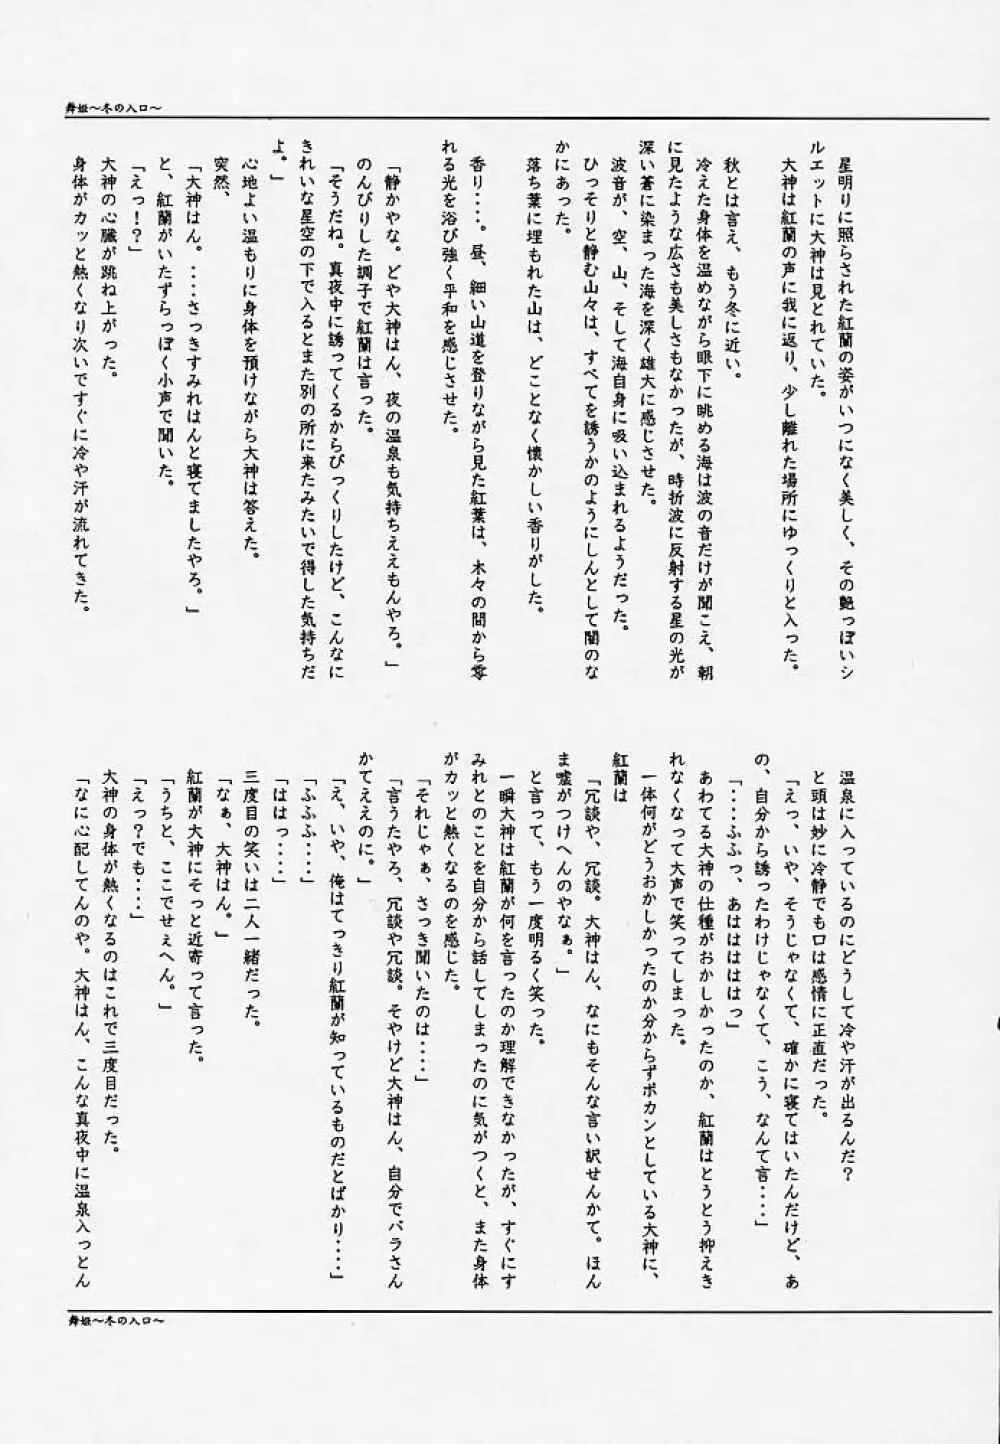 舞姫～冬の入口～
星明りに照らされた紅蘭の姿がいつになく美しく、その艶っぽいシ
ルエットに大神は見とれていた。
大神は紅蘭の声に我に返り、少し離れた場所にゆっくりと入った。
秋とは言え、もう冬に近い。
冷えた身体を温めながら眼下に眺める海は波の音だけが聞こえ、朝
に見たような広さも美しさもなかったが、時折波に反射する星の光が
深い蒼に染まった海を深く雄大に感じさせた。
波音が、空、山、そして海自身に吸い込まれるようだった。
ひっそりと静む山々は、すべてを誘うかのようにしんとして闇のな
かにあった。
落ち葉に埋もれた山は、どことなく懐かしい香りがした。
香り・・・・。昼、細い山道を登りながら見た紅葉は、木々の間から零
れる光を浴び強く平和を感じさせた。
「静かやな。どや大神はん、夜の温泉も気持ちええもんやろ。」
のんびりした調子で紅蘭は言った。
「そうだね。真夜中に誘ってくるからびっくりしたけど、こんなに
きれいな星空の下で入るとまた別の所に来たみたいで得した気持ちだ
よ。」
心地よい温もりに身体を預けながら大神は答えた。
突然、
「大神はん。・・・さっきすみれはんと寝てましたやろ。」
と、紅蘭がいたずらっぽく小声で聞いた。
「えっ！？」
大神の心臓が跳ね上がった。
身体がカッと熱くなり次いですぐに冷や汗が流れてきた。
温泉に入っているのにどうして冷や汗が出るんだ？
と頭は妙に冷静でも口は感情に正直だった。
「えっ、いや、そうじゃなくて、確かに寝てはいたんだけど、あ
の、自分から誘ったわけじゃなくて、こう、なんて言・・・・」
「・・・・ふふっ、あはははははっ」
あわてる大神の仕種がおかしかったのか、紅蘭はとうとう抑えき
れなくなって大声で笑ってしまった。
一体何がどうおかしかったのか分からずポカンとしている大神に、
紅蘭は
「冗談や、冗談。大神はん、なにもそんな言い訳せんかて。ほん
ま嘘がつけへんのやなぁ。」
と言って、もう一度明るく笑った。
一瞬大神は紅蘭が何を言ったのか理解できなかったが、すぐにす
みれとのことを自分から話してしまったのに気がつくと、また身体
がカッと熱くなるのを感じた。
「それじゃぁ、さっき聞いたのは・・・・」
「言うたやろ、冗談や冗談。そやけど大神はん、自分でバラさん
かてええのに。」
「え、いや、俺はてっきり紅蘭が知っているものだとばかり・・・・」
「ふふふ・・・・」
「ははっ・・・・」
三度目の笑いは二人一緒だった。
「なぁ、大神はん。」
紅蘭が大神にそっと近寄って言った。
「うちと、ここでせぇへん。」
「えっ？でも・・・・」
大神の身体が熱くなるのはこれで三度目だった。
「なに心配してんのや。大神はん、こんな真夜中に温泉入っとん
舞姫～冬の入口～